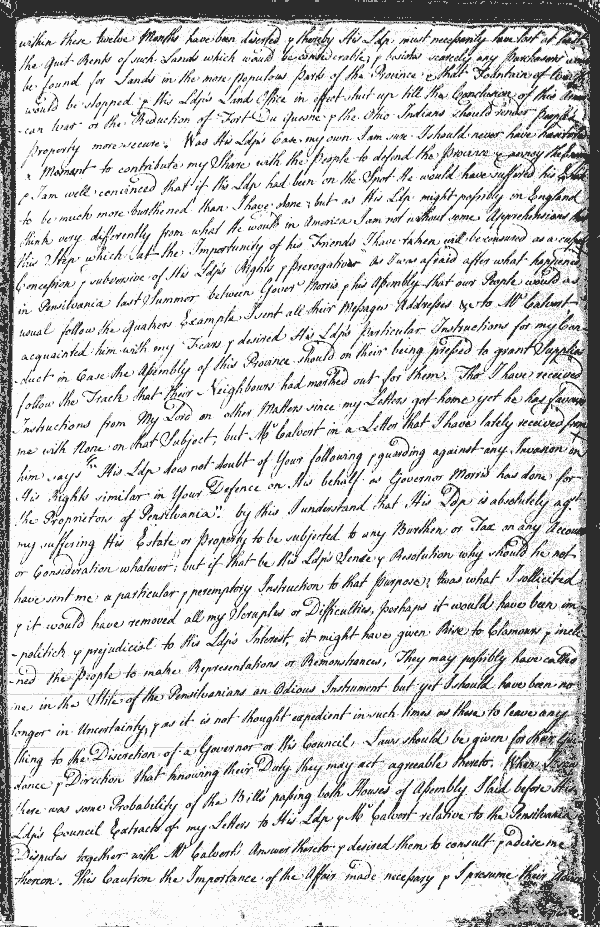 within these twelve Months have been deserted & thereby His Ldp must necessarily have lost at least
the Quit Rents of such Lands which would be considerable; & besides scarcely any Purchasers
be found for Lands in the more populous parts of the Province & that Fountain of
would be stopped & his Ldp's Land Office in effect shut up till the Conclusion of this
can War or the Reduction of Fort Du Quesne & the Ohio Indians should render People's
Property more secure. Was His Ldp's Case my own I am sure I should never have
a Moment to contribute my Share with the People to defend the Province & annoy the
& I am well convinced that if His Ldp had been on the Spot He would have suffered his
to be much more burthened than I have done; but as His Ldp might possibly in England
think very differently from what He would in America I am not without some Apprehensions
this Step which at the Importunity of his Friends I have taken will be censured as a
Concession & subversive of His Ldp's Rights & Prerogatives As I was afraid after what happened
in Pensilvania last Summer between Govern Morris & his Assembly that our People would as
usual follow the Quakers Example I sent all their Messages Addresses &c to Mr Calvert
acquainted him with my Fears & desired His Ldp's Particular Instructions for my Con
duct in Case the Assembly of this Province should on their being pressed to grant Supplies
follow the Track that their Neighbours had marked out for them. Tho' I have received
Instructions from My Lord on other Matters since my Letters got home yet he has
me with None on that Subject, but Mr Calvert in a Letter that I have lately received from
him says "His Ldp does not doubt of Your following & guarding against any Invasion on
His Rights similar in Your Defence on His behalf as Governor Morris has done for
the Proprietors of Pensilvania". by this I understand that His Ldp is absolutely agst
my suffering His Estate or Property to be subjected to any Burthen or Tax on any Account
or Consideration whatever; but if that be His Ldp's Sense & Resolution why should he not
have sent me a particular & peremptory Instruction to that Purpose; twas what I sollicited
& it would have removed all my Scruples or Difficulties, perhaps it would have been im
-politick & prejudicial to His Ldp's Interest, it might have given Rise to Clamours & incli
-ned the People to make Representations or Remonstrances, They may possibly have called
me in the Stile of the Pensilvanians an Odious Instrument but yet I should have been no
longer in Uncertainty, & as it is not thought expedient in such times as these to leave any
thing to the Discretion of a Governor or His Council, Laws should be given for their Gui
dance & Direction that knowing their Duty they may act agreeable thereto. When
there was some Probability of the Bills passing both Houses of Assembly I laid before His
Ldp's Council Extracts of my Letters to His Ldp & Mr Calvert relative to the Pensilvania
Disputes together with Mr Calvert's Answer thereto & desired them to consult & advise me
thereon. This Caution the Importance of the Affair made necessary & I presume their